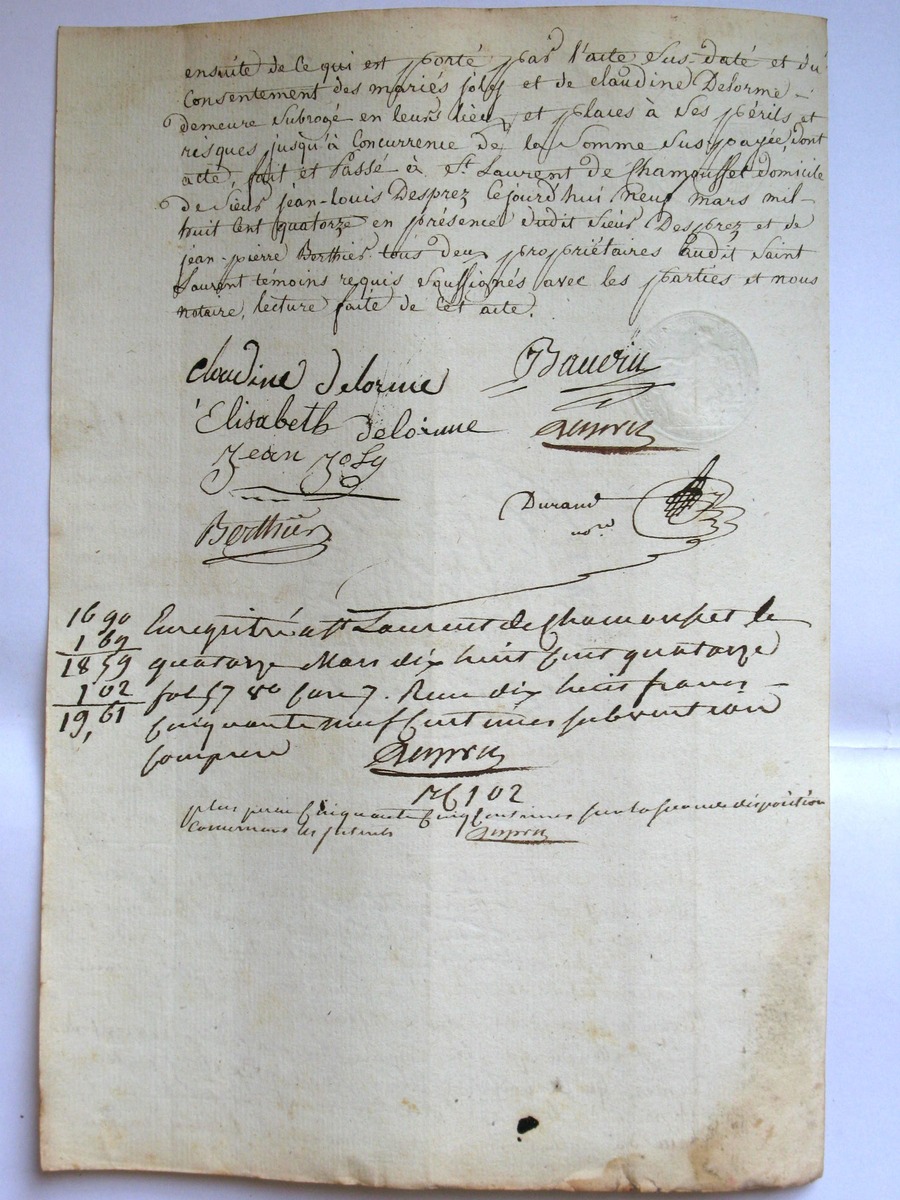 ensuite de ce qui est porté par l'acte sus-daté et du
Consentement des mariés joly et de claudine Delorme -
demeure Subrogé en leurs lieu et places à ses périls et
risques jusqu'à Concurrence de la Somme Sus payée, dont
acte, fait et Passé à St. Laurent de Chamousset domicile
de Sieur jean-louis Desprez Cejourd'hui Neuf mars mil-
huit Cent quatorze en présence dudit Sieur Desprez et de
jean-pierre Berthier tous deux propriétaires audit Saint
Laurent témoins requis Soussignés avec les parties et nous
notaire, lecture faite de cet acte.
Claudine Delorme
Baudin
Elisabeth delorme
Desprez
Jean Joly
Durand
nore
Berthier
16 90
1 69
18 59
1 02
19, 61
Enregistré à St Laurent de Chamousset le
quatorze Mars dix huit cent quatorze
fol 57 Vo Case 7. Reçu dix huit francs
Cinquante neuf Centimes subvention
comprise
Desprez
1 02
plus perçu Cinquante Cinq Centimes sur la Seconde disposition
Desprez